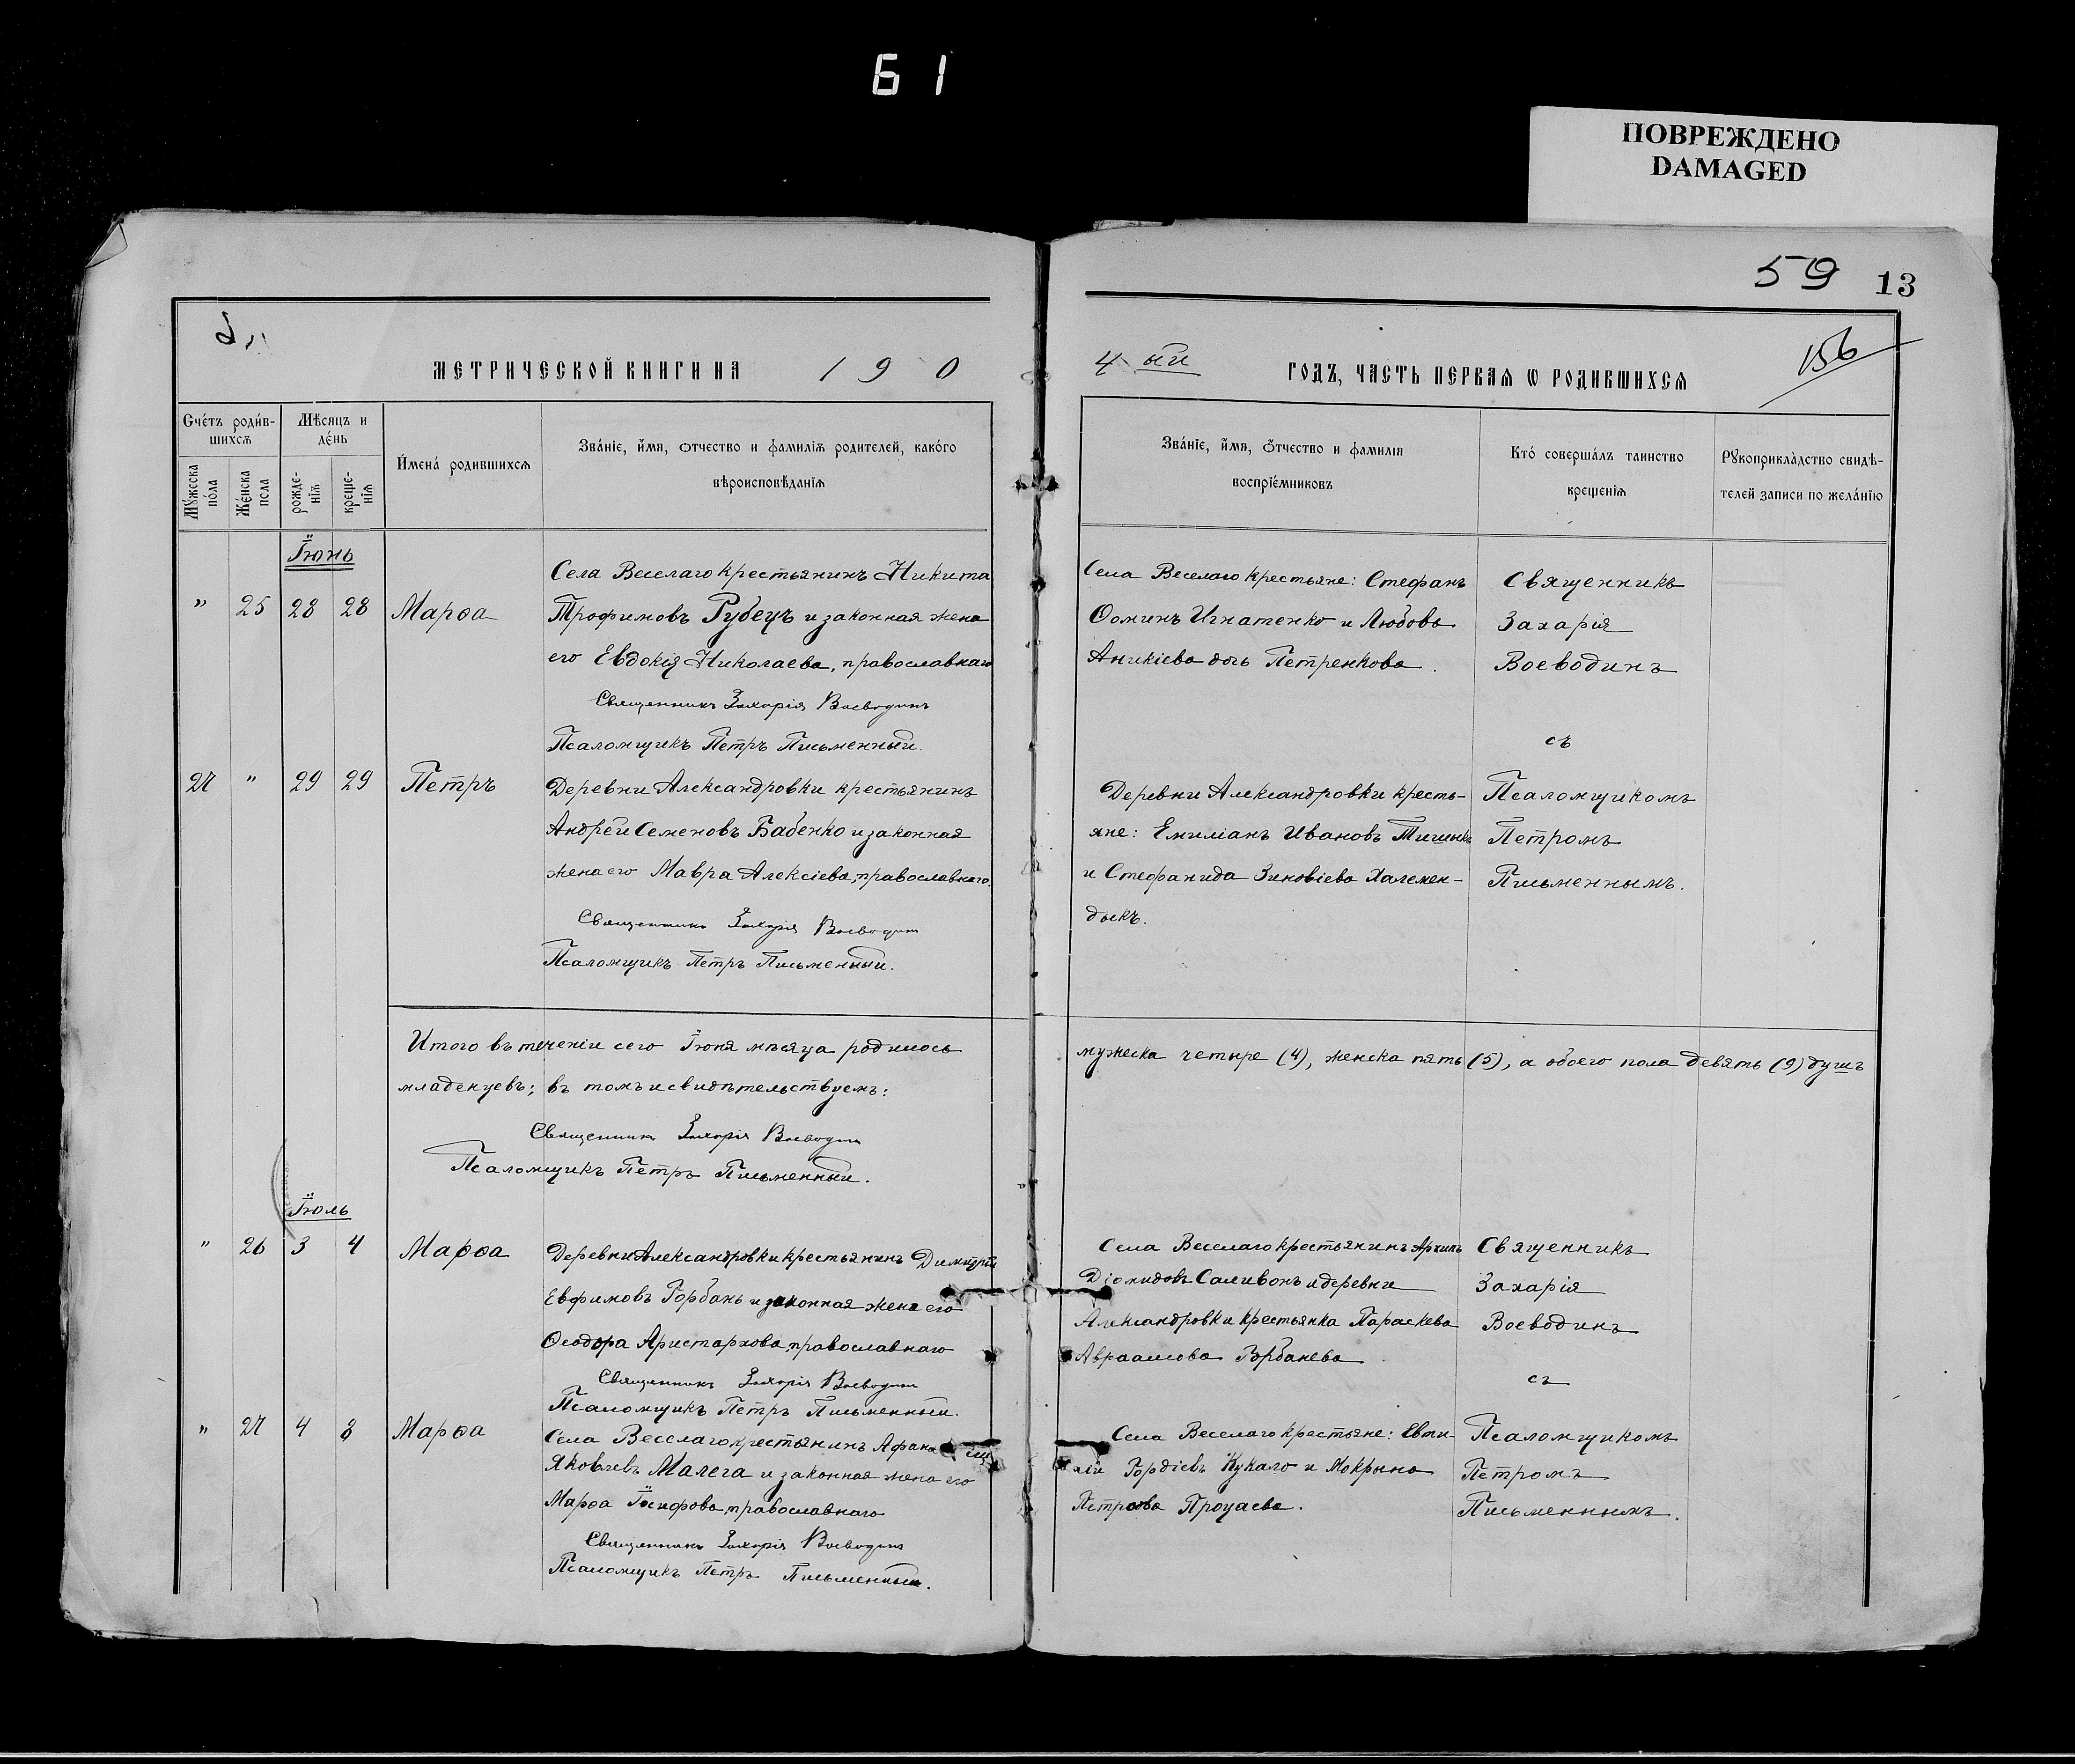 61
ПОВРЕЖДЕНО
DAMAGED
59 13
156
МЕТРИЧЕСКОЙ КНИГИ НА 190
4ый ГОДЪ, ЧАСТЬ ПЕРВАЯ Ѡ РОДИВШИХСЯ
Счетъ родив-
шихся
Мужеска
пола
Женска
пола
Мѣсяцъ и
день
рожде-
нія
креще-
нія
Имена родившихся
Званіе, имя, отчество и фамилія родителей, какого
вѣроисповѣданія
Званіе, имя, отчество и фамилія
воспріемниковъ
Кто совершалъ таинство
крещенія
Рукоприкладство свидѣ-
телей записи по желанію
Іюнь
" 25 28 28 Марѳа
Села Веселаго крестьянинъ Никита
Трофимовъ Рубецъ и законная жена
его Евдокія Николаева, православнаго
Священникъ Захарія Воеводинъ
Псаломщикъ Петръ Письменный.
Села Веселаго крестьяне: Стефанъ
Ѳоминъ Игнатенко и Любовь
Аникіева дочь Петренкова.
Священникъ
Захарія
Воеводинъ
съ
Псаломщикомъ
Петромъ
Письменнымъ.
27 " 29 29 Петръ
Деревни Александровки крестьянинъ
Андрей Семеновъ Бабенко и законная
жена его Мавра Алексіева, православнаго.
Священникъ Захарія Воеводинъ
Псаломщикъ Петръ Письменный.
Деревни Александровки кресть-
яне: Емиліанъ Ивановъ
и Стефанида Зиновіева Халемен-
дыкъ.
Итого въ теченіи сего Іюня мѣсяца родилось
младенцевъ; въ томъ и свидѣтельствуемъ:
Священникъ Захарія Воеводинъ
Псаломщикъ Петръ Письменный.
мужеска четыре (4), женска пять (5), а обоего пола девять (9) душъ
Іюль
" 26 3 4 Марѳа
Деревни Александровки крестьянинъ Димитрій
Евфимовъ Горбань и законная жена его
Ѳеодора Аристархова, православнаго
Священникъ Захарія Воеводинъ
Псаломщикъ Петръ Письменный.
Села Веселаго крестьянинъ Архипъ
Діомидовъ Саливонъ и деревни
Александровки крестьянка Параскева
Авраамова Горбанева
Священникъ
Захарія
Воеводинъ
съ
Псаломщикомъ
Петромъ
Письменнымъ.
" 27 4 8 Марѳа
Села Веселаго крестьянинъ Афанасій
Яковлевъ Малега и законная жена его
Марѳа Іосифова, православнаго
Священникъ Захарія Воеводинъ
Псаломщикъ Петръ Письменный.
Села Веселаго крестьяне: Евти-
хій Гордіевъ Кукало и Мокрына
Петрова Процаева.